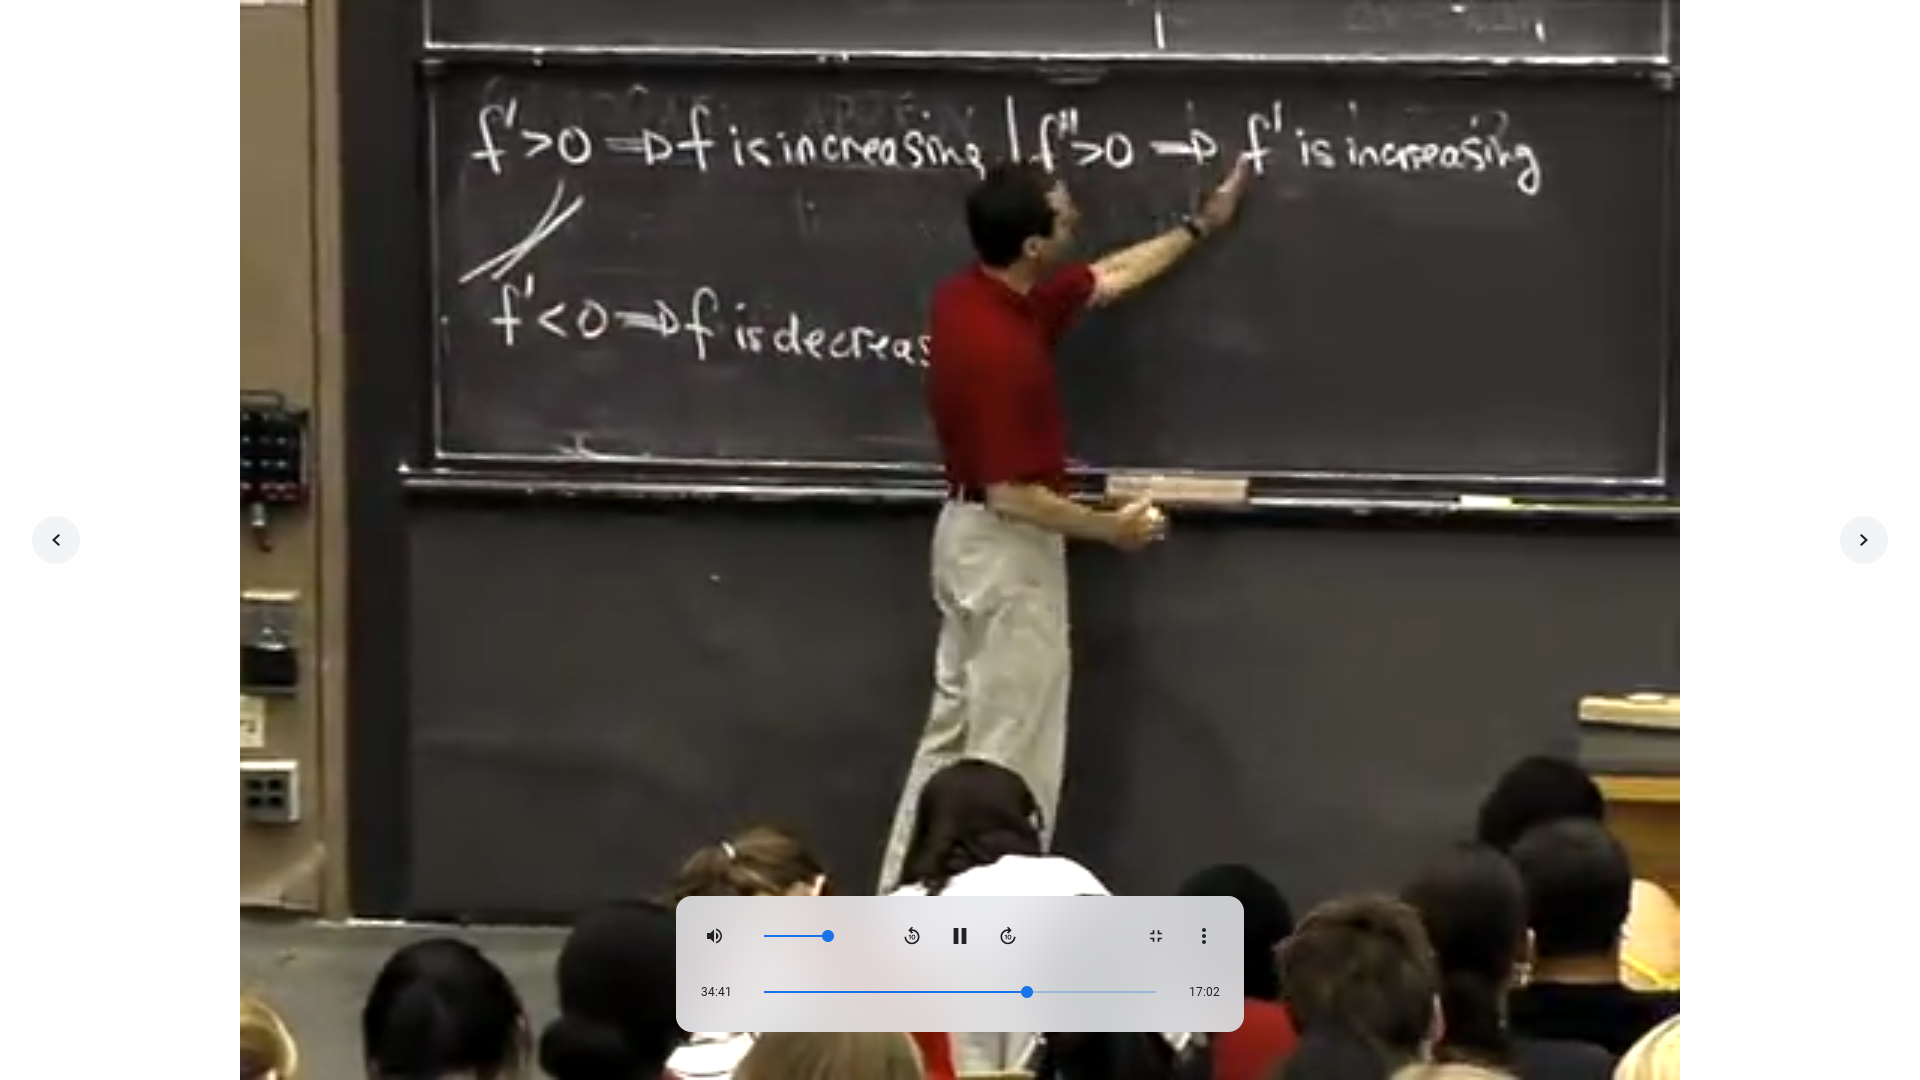 f'>0 ⇒ f is increasing | f''>0 ⇒ f' is increasing
f'<0 ⇒ f is decreas
34:41 17:02